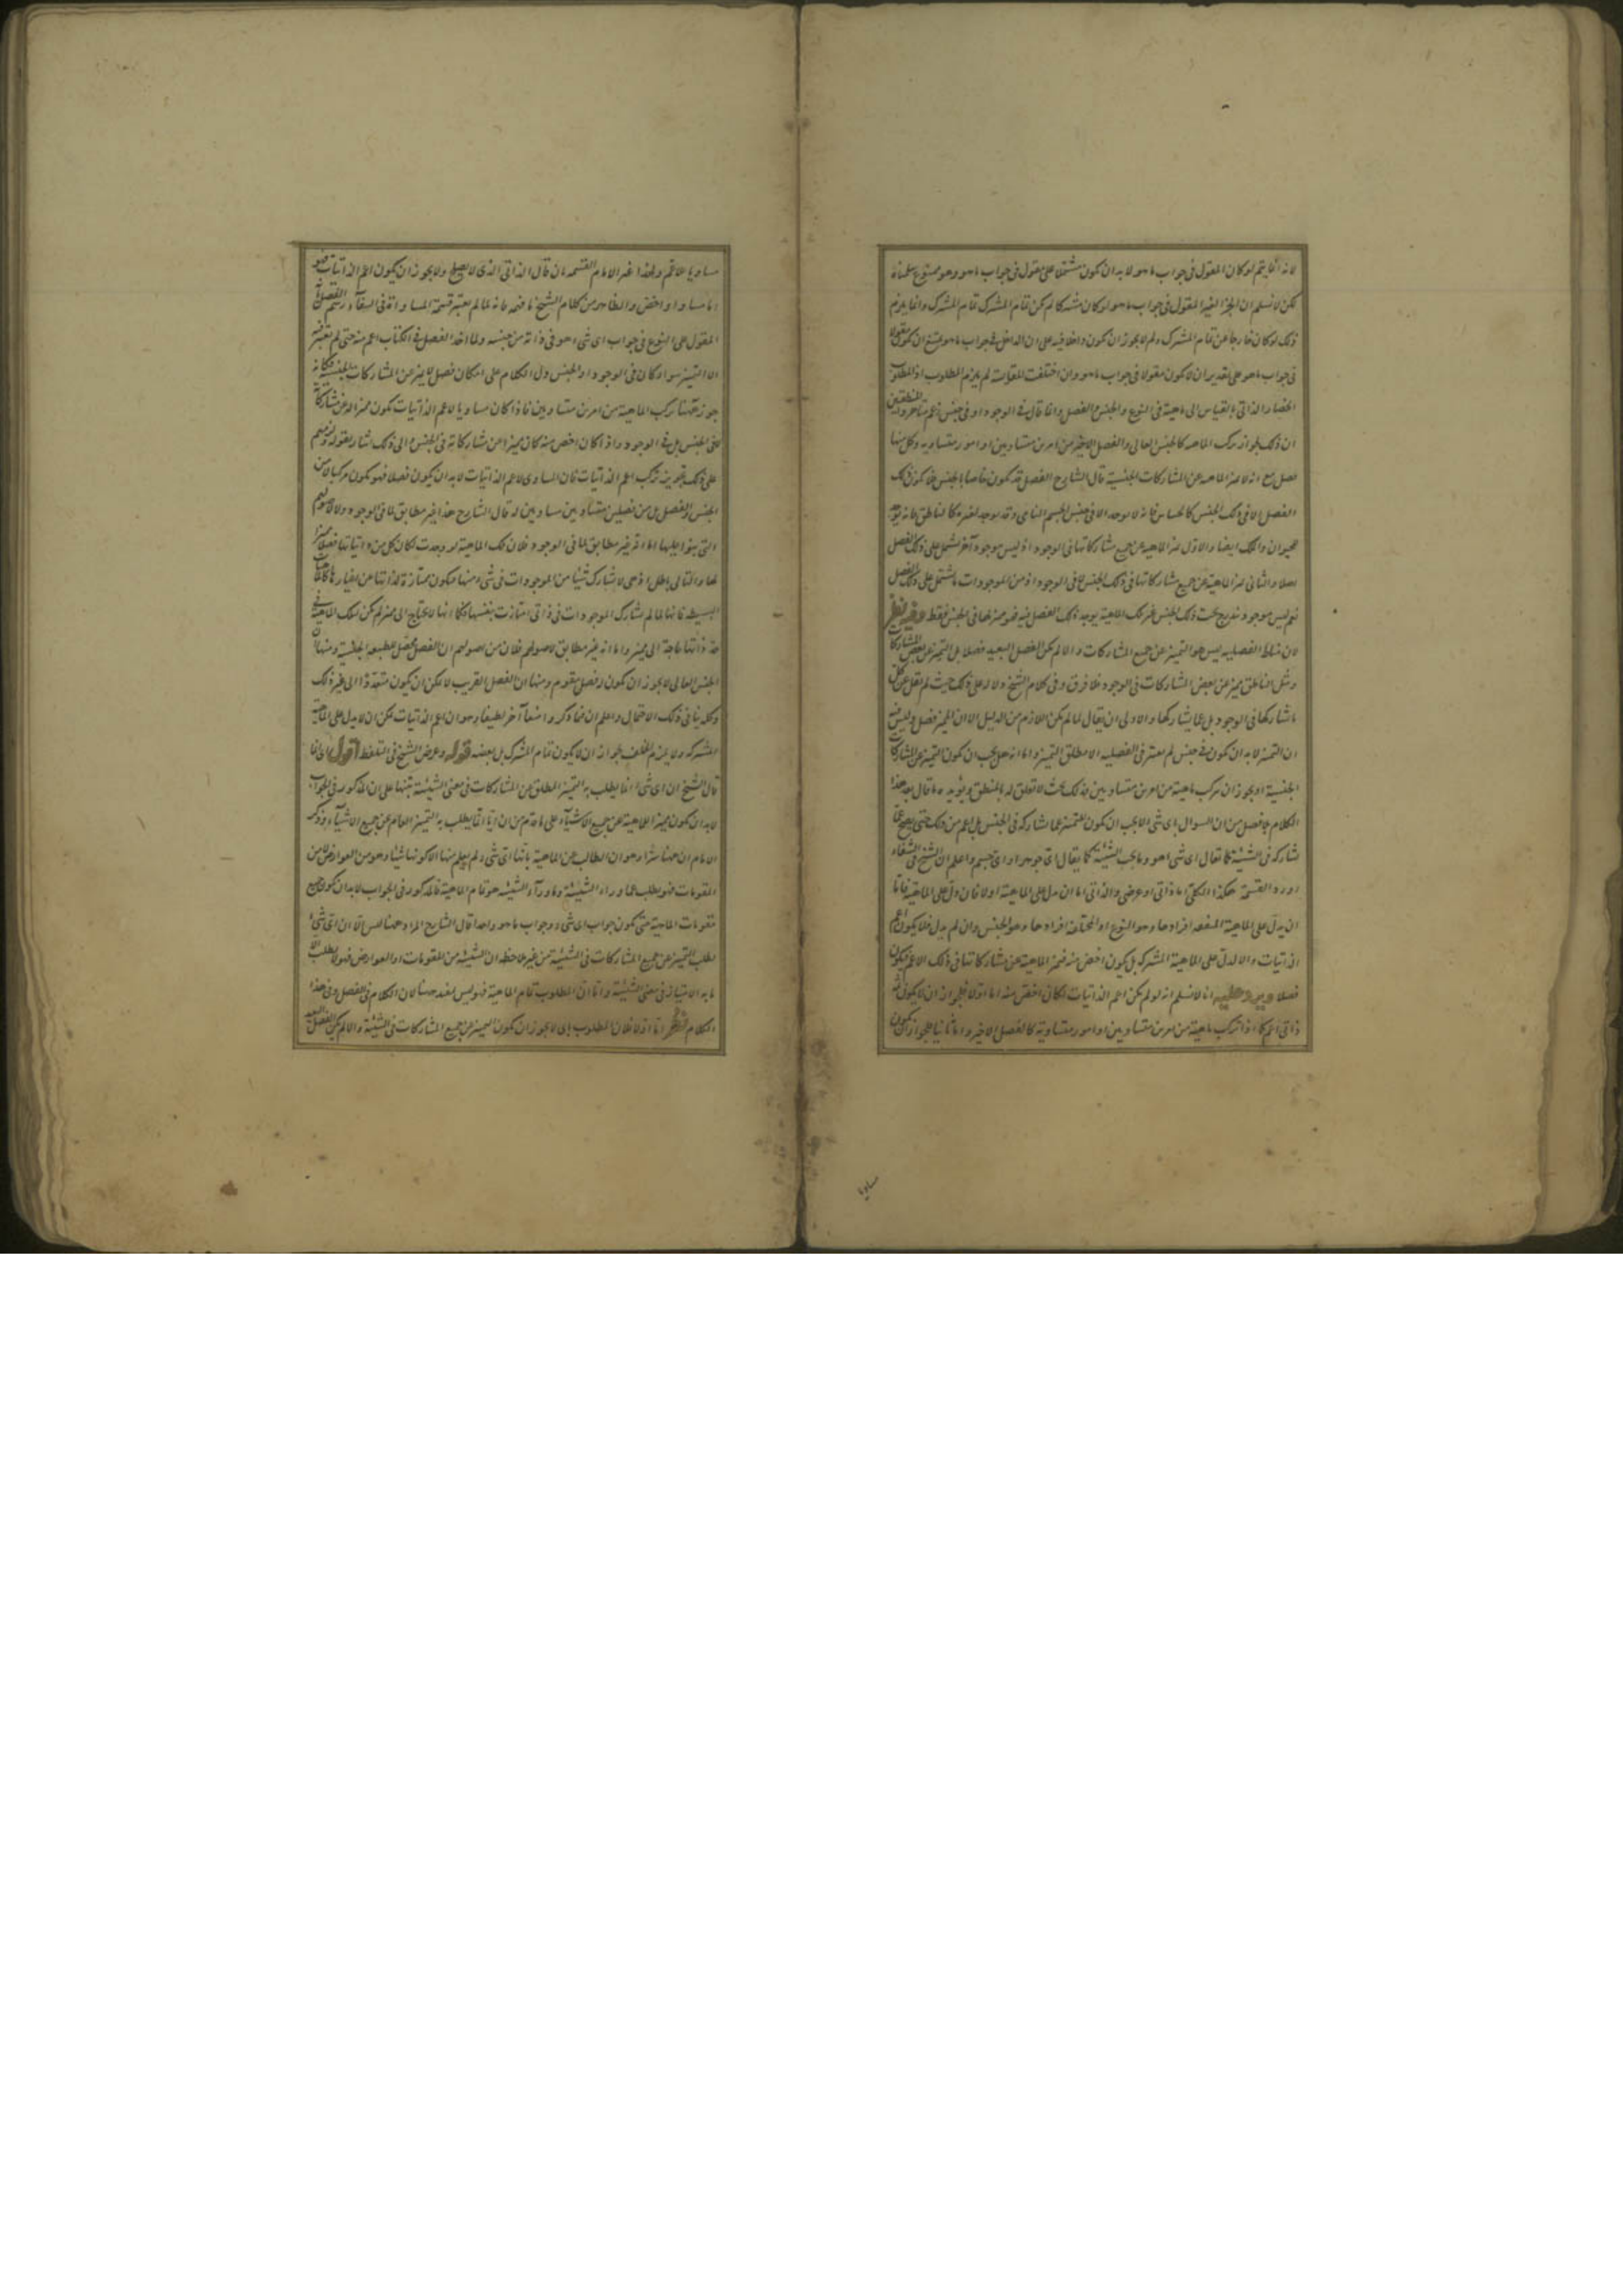 لانه انما يتم لو كان المقول فى جواب ما هو لا بد ان يكون مشتملا على مقول فى جواب ما هو وهو ممنوع سلمناه
لكن لا نسلم ان الجزء الغير المقول فى جواب ما هو لو كان مشتركا لم يكن تمام المشترك تمام المشترك وانما يلزم
ذلك لو كان خارجا عن تمام المشترك ولم لا يجوز ان يكون داخلا فيه على ان الداخل فى جواب ما هو يمتنع ان يكون مقولا
فى جواب ما هو على تقدير ان لا يكون مقولا فى جواب ما هو وان اختلفت المقايسة لم يلزم المطلوب اذ المطلوب
انحصار الذاتى بالقياس الى ماهية فى النوع والجنس والفصل وانما قال فى الوجود او فى جنس زعم متأخروا المنطقيين
ان ذلك لجواز تركب الماهية كالجنس العالى والفصل الاخير من امرين متساويين او امور متساوية وكل منها
فصل مع انه لا يميز الماهية عن المشاركات الجنسية قال الشارح الفصل قد يكون خاصا بالجنس فلا يكون ذلك
الفصل الا فى ذلك الجنس كالحساس فانه لا يوجد الا فى جنس الجسم النامى وقد يوجد لغيره كالناطق فانه يوجد
للحيوان والملك ايضا والاول يميز الماهية عن جميع مشاركاتها فى الوجود اذ ليس موجود آخر يشتمل على ذلك الفصل
اصلا والثانى يميز الماهية عن جميع مشاركاتها فى ذلك الجنس لا فى الوجود اذ من الموجودات ما يشتمل على ذلك الفصل
نعم ليس موجود يندرج تحت ذلك الجنس غير تلك الماهية يوجد ذلك الفصل فيه فهو مميز لها فى الجنس فقط وفيه نظر
لان مناط الفصلية ليس هو التمييز عن جميع المشاركات والا لم يكن الفصل البعيد فصلا بل التمييز عن بعض المشاركات
ومثل الناطق يميز عن بعض المشاركات فى الوجود فلا فرق وفى كلام الشيخ دلالة على ذلك حيث لم يقل عن كل
ما يشاركها فى الوجود بل عما يشاركها والاولى ان يقال لما لم يكن اللازم من الدليل الا ان المميز فصل وليس فيه
ان التمييز لا بد ان يكون فى جنس لم يعتبر فى الفصلية الا مطلق التمييز واما انه هل يجب ان يكون التمييز عن المشاركات
الجنسية او يجوز ان تتركب ماهية من امرين متساويين فذلك بحث لا تعلق له بالمنطق ويؤيده ما قال بعد هذا
الكلام بلا فصل من ان السؤال باى شىء لا يجب ان يكون للتمييز عما يشاركه فى الجنس بل اعم من ذلك حتى يصح عما
يشاركه فى الشيئية كما يقال اى شىء هو وما يجب الشيئية كما يقال اى جوهر او اى جسم واعلم ان الشيخ فى الشفاء
اورد القسمة هكذا الكلى اما ذاتى او عرضى والذاتى اما ان يدل على الماهية او لا فان دل على الماهية فاما
ان يدل على الماهية المتفقة افرادها وهو النوع او المختلفة افرادها وهو الجنس وان لم يدل فلا يكون اعم
الذاتيات والا لدل على الماهية المشتركة بل يكون اخص منه فيميز الماهية عن مشاركاتها فى ذلك الاعم فيكون
فصلا ويرد عليه انا لا نسلم انه لو لم يكن اعم الذاتيات لكان اخص منه اما اولا فلجواز ان لا يكون ثمة
ذاتى اعم كما اذا تركب ماهية من امرين متساويين او امور متساوية كالفصل الاخير واما ثانيا فلجواز ان يكون
مساويا
مساويا للاعم ولهذا غير الامام القسمة بان قال الذاتى الذى لا يصلح ولا يجوز ان يكون اعم الذاتيات فهو
اما مساو او اخص والظاهر من كلام الشيخ ما فهمه فانه لما لم يعتبر قسمة المساواة فى الشفاء رسم الفصل بانه
المقول على النوع فى جواب اى شىء هو فى ذاته من جنسه ولما اخذ الفصل فى الكتاب اعم منه حتى لم يعتبر فيه
الا التمييز سواء كان فى الوجود او الجنس دل الكلام على امكان فصل لا يميز عن المشاركات الجنسية فكانه
جوز ههنا تركب الماهية من امرين متساويين فاذا كان مساويا لاعم الذاتيات يكون مميزا له عن مشاركاته
لا فى الجنس بل فى الوجود واذا كان اخص منه كان مميزا عن مشاركاته فى الجنس والى ذلك اشار بقوله
على ذلك تجويز تركب اعم الذاتيات فان المساوى لاعم الذاتيات لا بد ان يكون فصلا فهو يكون مركبا لا من
الجنس والفصل بل من فصلين متساويين مساويين له قال الشارح هذا غير مطابق لما فى الوجود ولا لاصولهم
التى بنوا عليها اما انه غير مطابق لما فى الوجود فلان تلك الماهية لو وجدت لكان كل من ذاتياتها فصلا مميزا
لها والتالى باطل اذ هى لا تشارك شيئا من الموجودات فى شىء منها فيكون ممتازة لذاتها عن مغايرها كالماهيات
البسيطة فانها لما لم تشارك الموجودات فى ذاتى امتازت بنفسها فكما انها لا تحتاج الى مميز لم يكن لتلك الماهية فى
حد ذاتها حاجة الى مميز واما انه غير مطابق لاصولهم فلان من اصولهم ان الفصل محصل لطبيعة الجنسية ومنها ان
الجنس العالى لا يجوز ان يكون له فصل مقوم ومنها ان الفصل القريب لا يمكن ان يكون متعددا الى غير ذلك
وكله ينافى ذلك الاحتمال واعلم ان فيما ذكروا ضعفا آخر لطيفا وهو ان اعم الذاتيات يمكن ان لا يدل على الماهية
المشتركة ولا يلزم الخلف لجواز ان لا يكون تمام المشترك بل بعضه قوله وغرض الشيخ فى التلفظ اقول اى انما
قال الشيخ ان اى شىء انما يطلب به التمييز المطلق عن المشاركات فى معنى الشيئية تنبيها على ان المذكور فى الجواب
لا بد ان يكون مميزا للماهية عن جميع الاشياء على ما تقدم من ان ايا انما يطلب به التمييز العام عن جميع الاشياء وذكر
الامام ان ههنا سرا وهو ان الطالب عن الماهية بانها اى شىء لم يعلم منها الا كونها شيئا وهو من العوارض لا من
المقومات فهو يطلب بما وراء الشيئية وما وراء الشيئية هو تمام الماهية فالمذكور فى الجواب لا بد ان يكون جميع
مقومات الماهية حتى يكون جواب اى شىء وجواب ما هو واحدا قال الشارح المراد ههنا ليس الا ان اى شىء
يطلب التمييز عن جميع المشاركات فى الشيئية من غير ملاحظة ان الشيئية من المقومات او العوارض فهو لا يطلب الا
ما به الامتياز فى معنى الشيئية واما ان المطلوب تمام الماهية فهو ليس بمفيد ههنا لان الكلام فى الفصل وفى هذا
الكلام نظر اما اولا فلان المطلوب باى لا يجوز ان يكون المميز عن جميع المشاركات فى الشيئية والا لم يكن الفصل البعيد